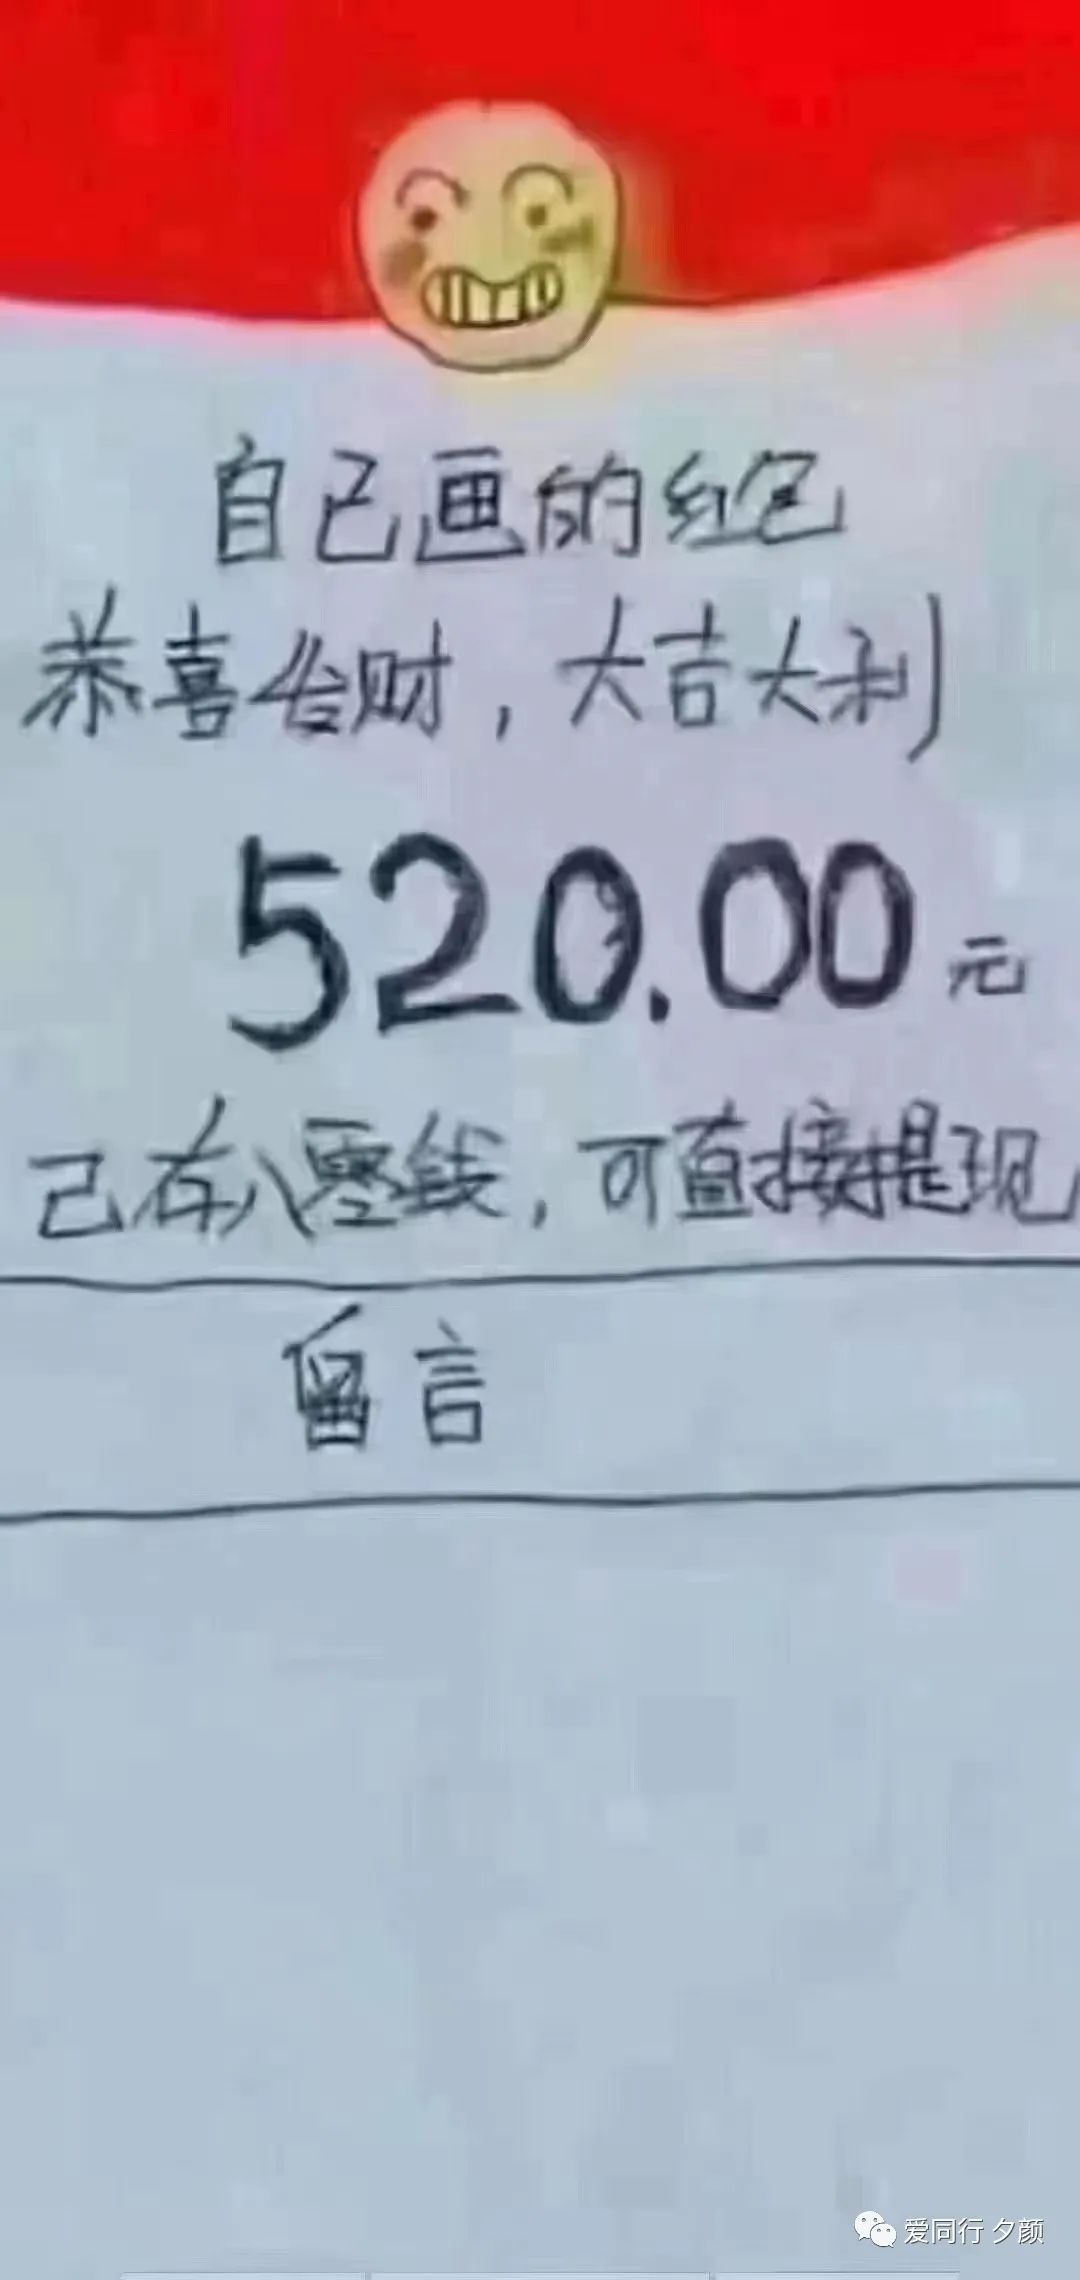 自己画的红包
恭喜发财，大吉大利
520.00元
己存入零钱，可直接提现
留言
爱同行 夕颜